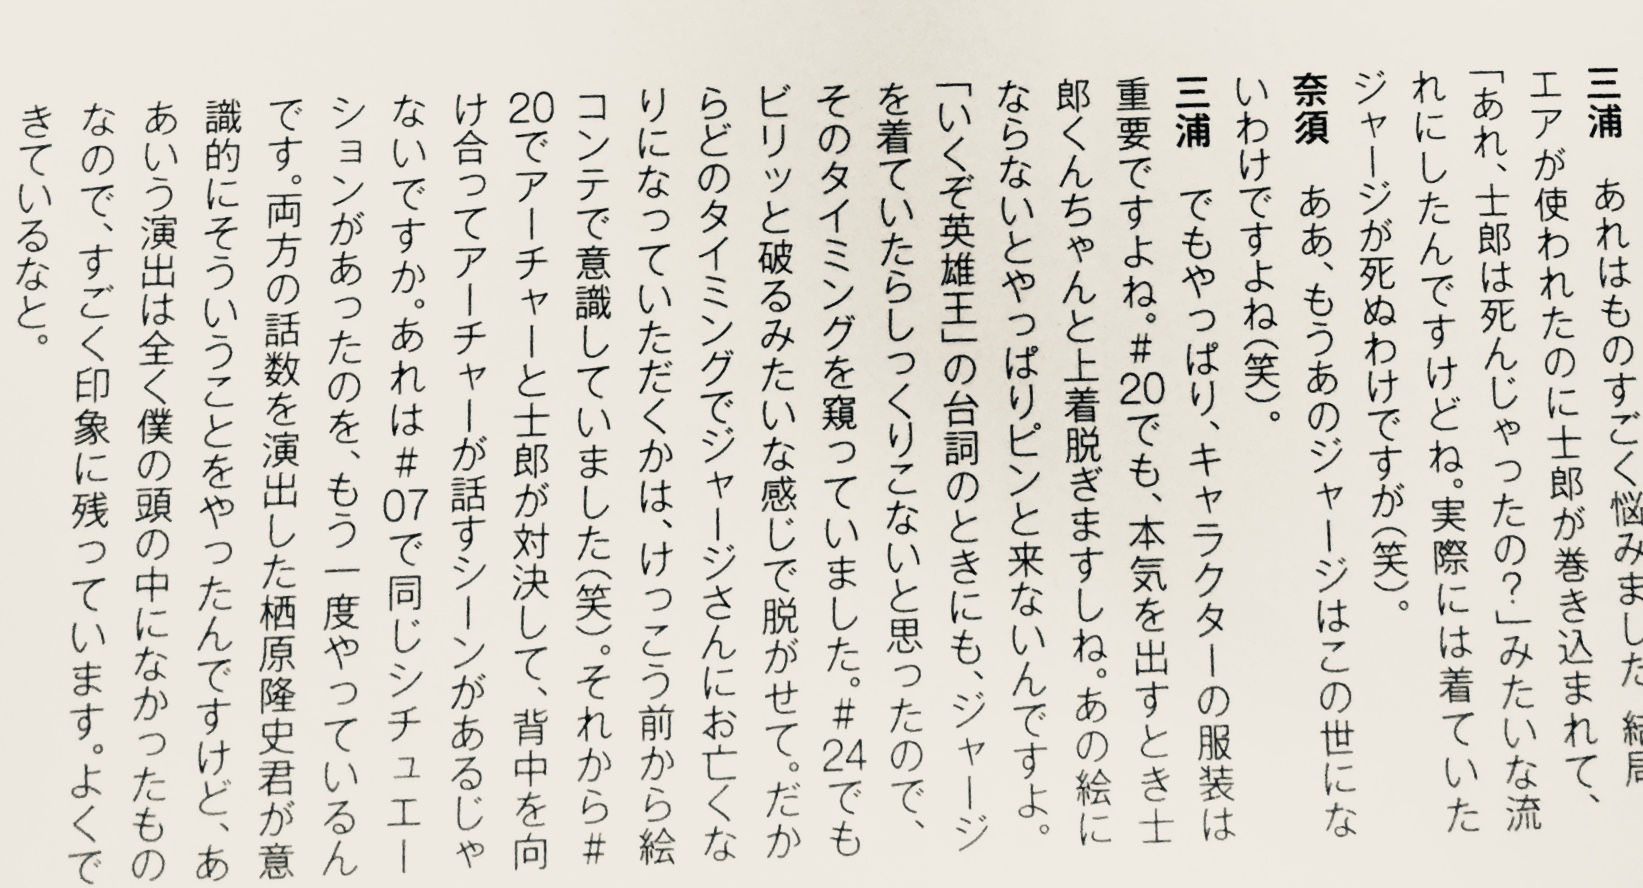 三浦　あれはものすごく悩みました 結局
エアが使われたのに士郎が巻き込まれて、
「あれ、士郎は死んじゃったの？」みたいな流
れにしたんですけどね。実際には着ていた
ジャージが死ぬわけですが（笑）。
奈須　ああ、もうあのジャージはこの世にな
いわけですよね（笑）。
三浦　でもやっぱり、キャラクターの服装は
重要ですよね。#20でも、本気を出すとき士
郎くんちゃんと上着脱ぎますしね。あの絵に
ならないとやっぱりピンと来ないんですよ。
「いくぞ英雄王」の台詞のときにも、ジャージ
を着ていたらしっくりこないと思ったので、
そのタイミングを窺っていました。#24でも
ビリッと破るみたいな感じで脱がせて。だか
らどのタイミングでジャージさんにお亡くな
りになっていただくかは、けっこう前から絵
コンテで意識していました（笑）。それから#
20でアーチャーと士郎が対決して、背中を向
け合ってアーチャーが話すシーンがあるじゃ
ないですか。あれは#07で同じシチュエー
ションがあったのを、もう一度やっているん
です。両方の話数を演出した栖原隆史君が意
識的にそういうことをやったんですけど、あ
あいう演出は全く僕の頭の中になかったもの
なので、すごく印象に残っています。よくで
きているなと。